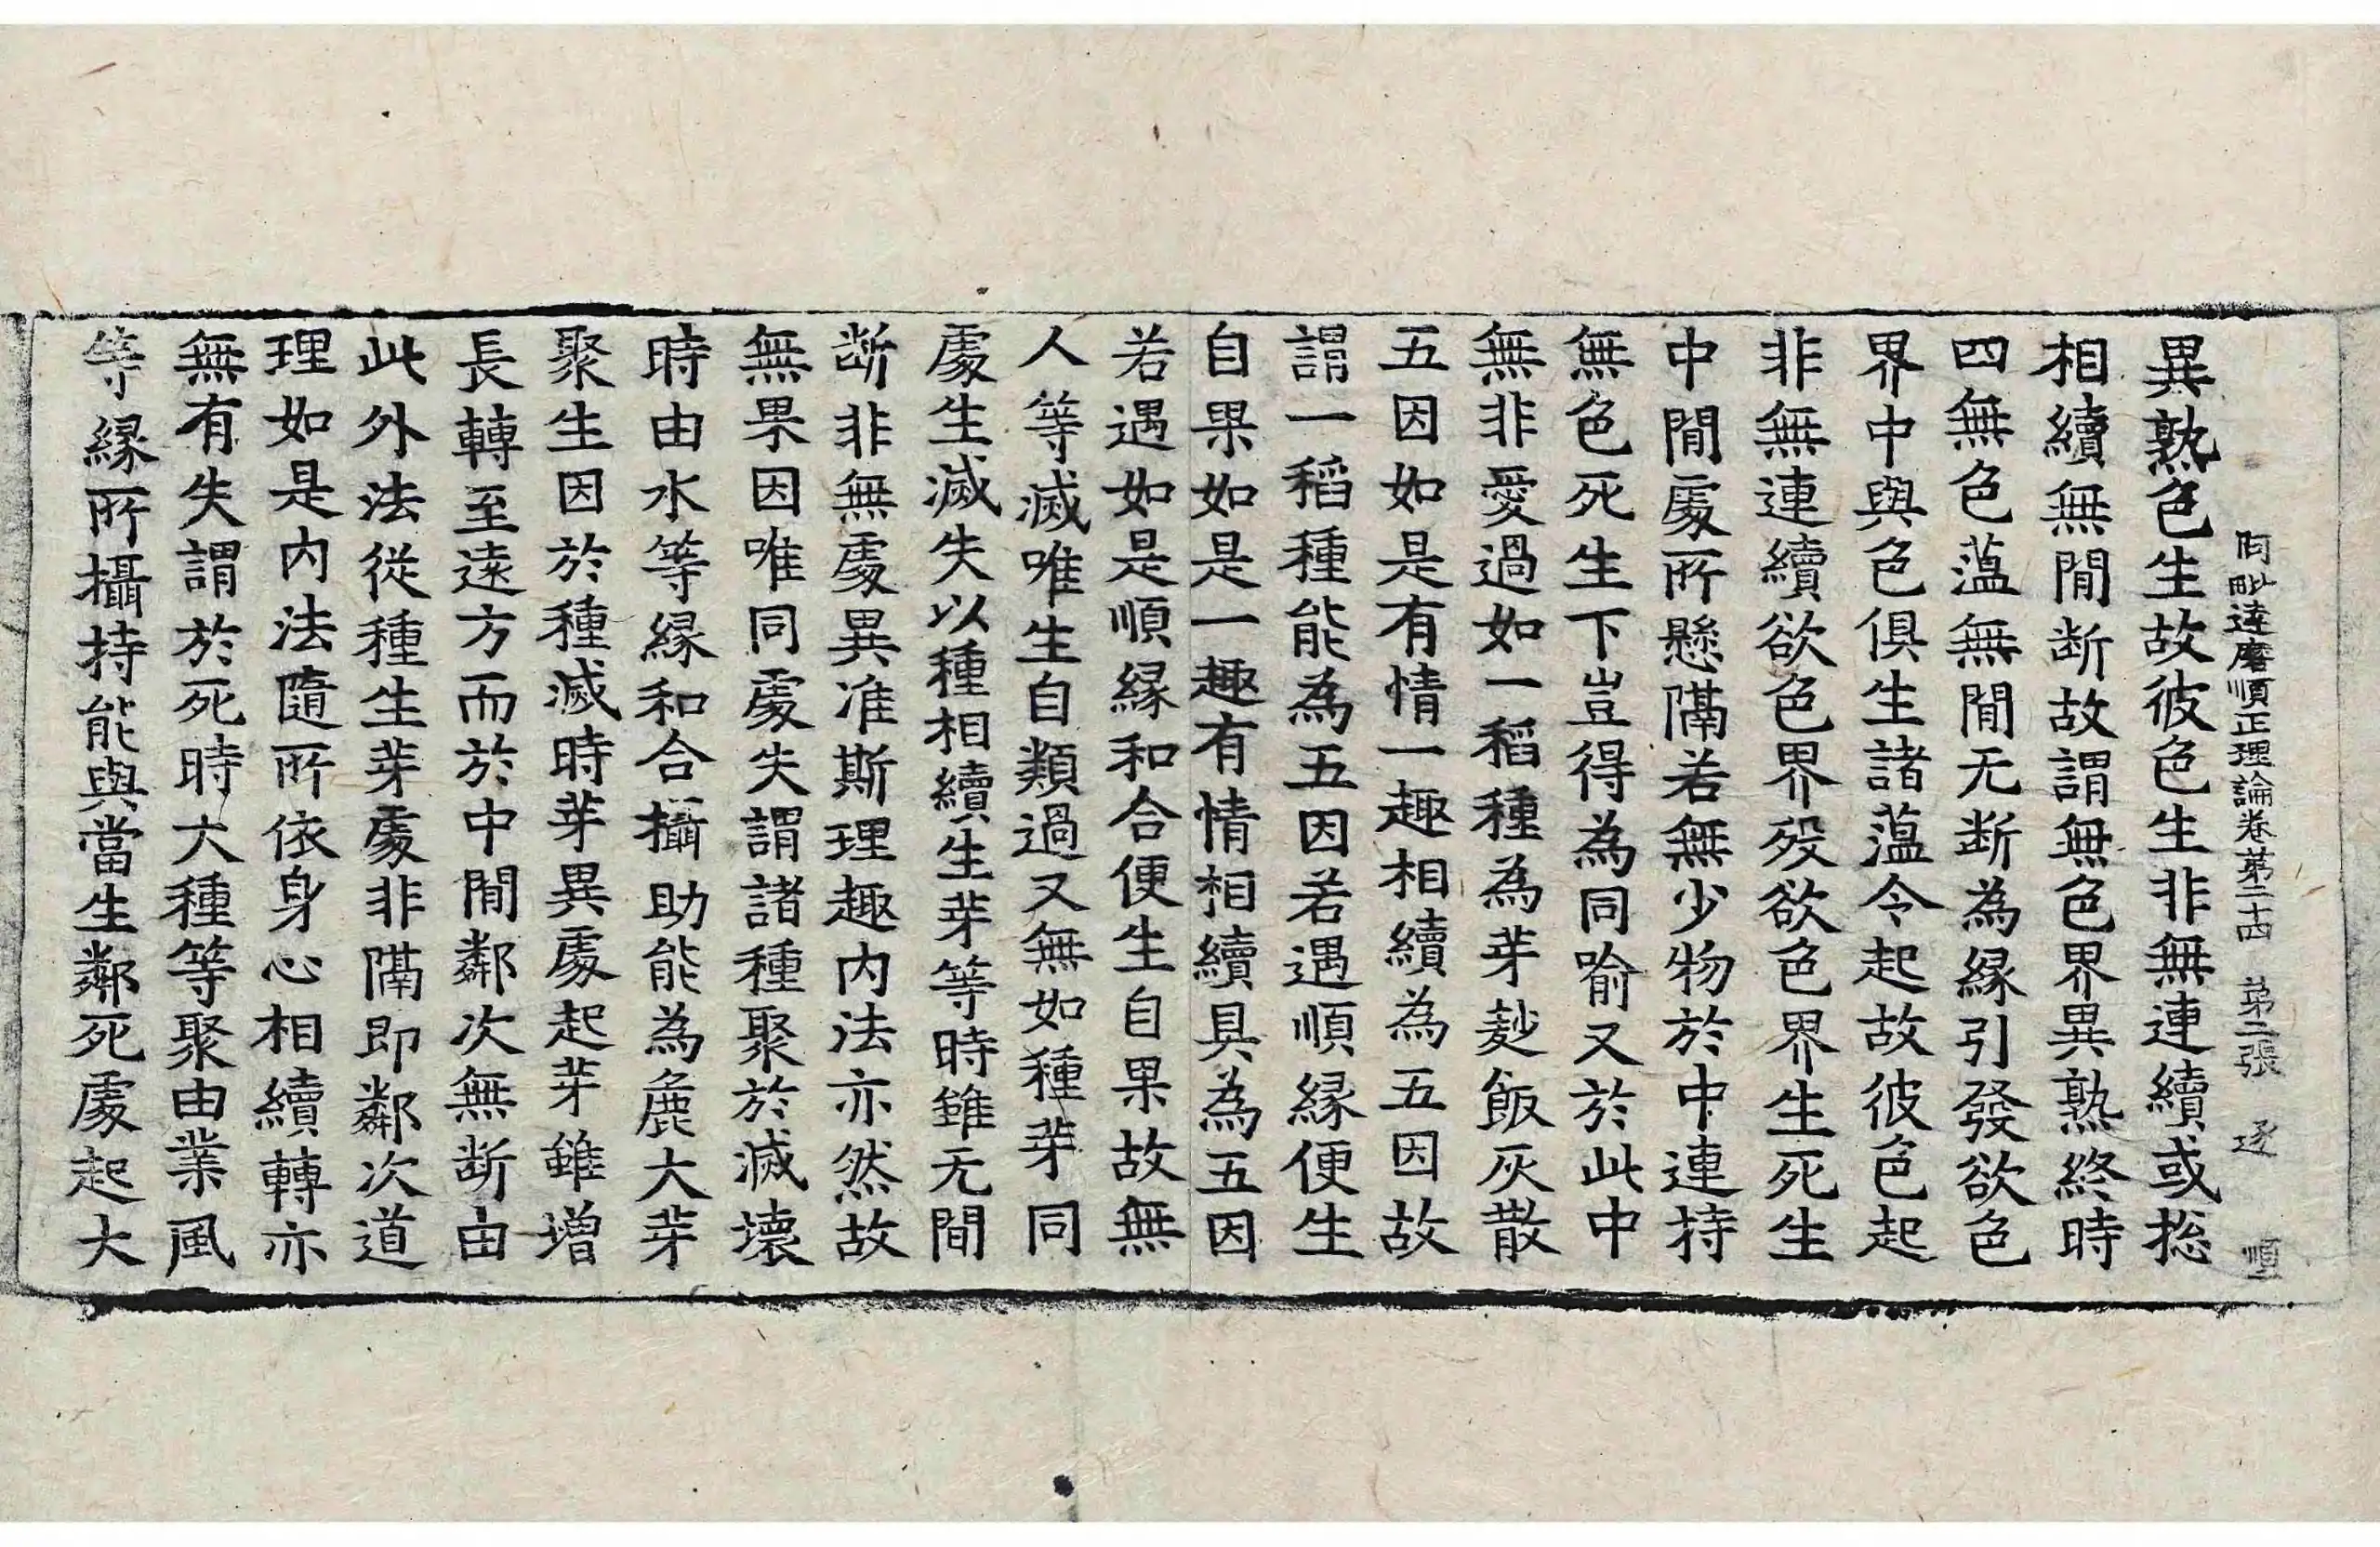 阿毗達磨順正理論卷第二十四 第二張 逐 順
異熟色生故彼色生非無連續或捴
相續無閒断故謂無色界異熟終時
四無色蕰無閒无断為縁引發欲色
界中與色俱生諸蕰令起故彼色起
非無連續欲色界歿欲色界生死生
中閒處所懸隔若無少物於中連持
無色死生下豈得為同喻又於此中
無非愛過如一稻種為芽麨飯灰散
五因如是有情一趣相續為五因故
謂一稻種能為五因若遇順縁便生
自果如是一趣有情相續具為五因
若遇如是順縁和合便生自果故無
人等滅唯生自類過又無如種芽同
處生滅失以種相續生芽等時雖无間
断非無處異准斯理趣内法亦然故
無果因唯同處失謂諸種聚於滅壞
時由水等縁和合攝助能為麁大芽
聚生因於種滅時芽異處起芽雖增
長轉至遠方而於中閒鄰次無断由
此外法從種生芽處非隔即鄰次道
理如是内法隨所依身心相續轉亦
無有失謂於死時大種等聚由業風
等縁所攝持能與當生鄰死處起大